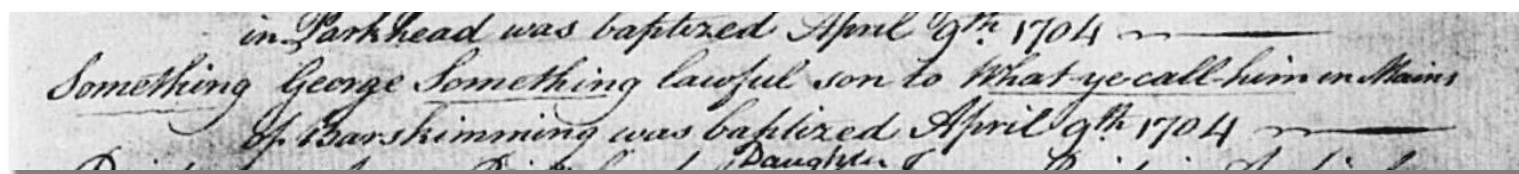 in Parkhead was baptized April 9th. 1704
Something George Something lawful son to What-ye-call-him in Mains
of Barskimming was baptized April 9th. 1704
Daughter